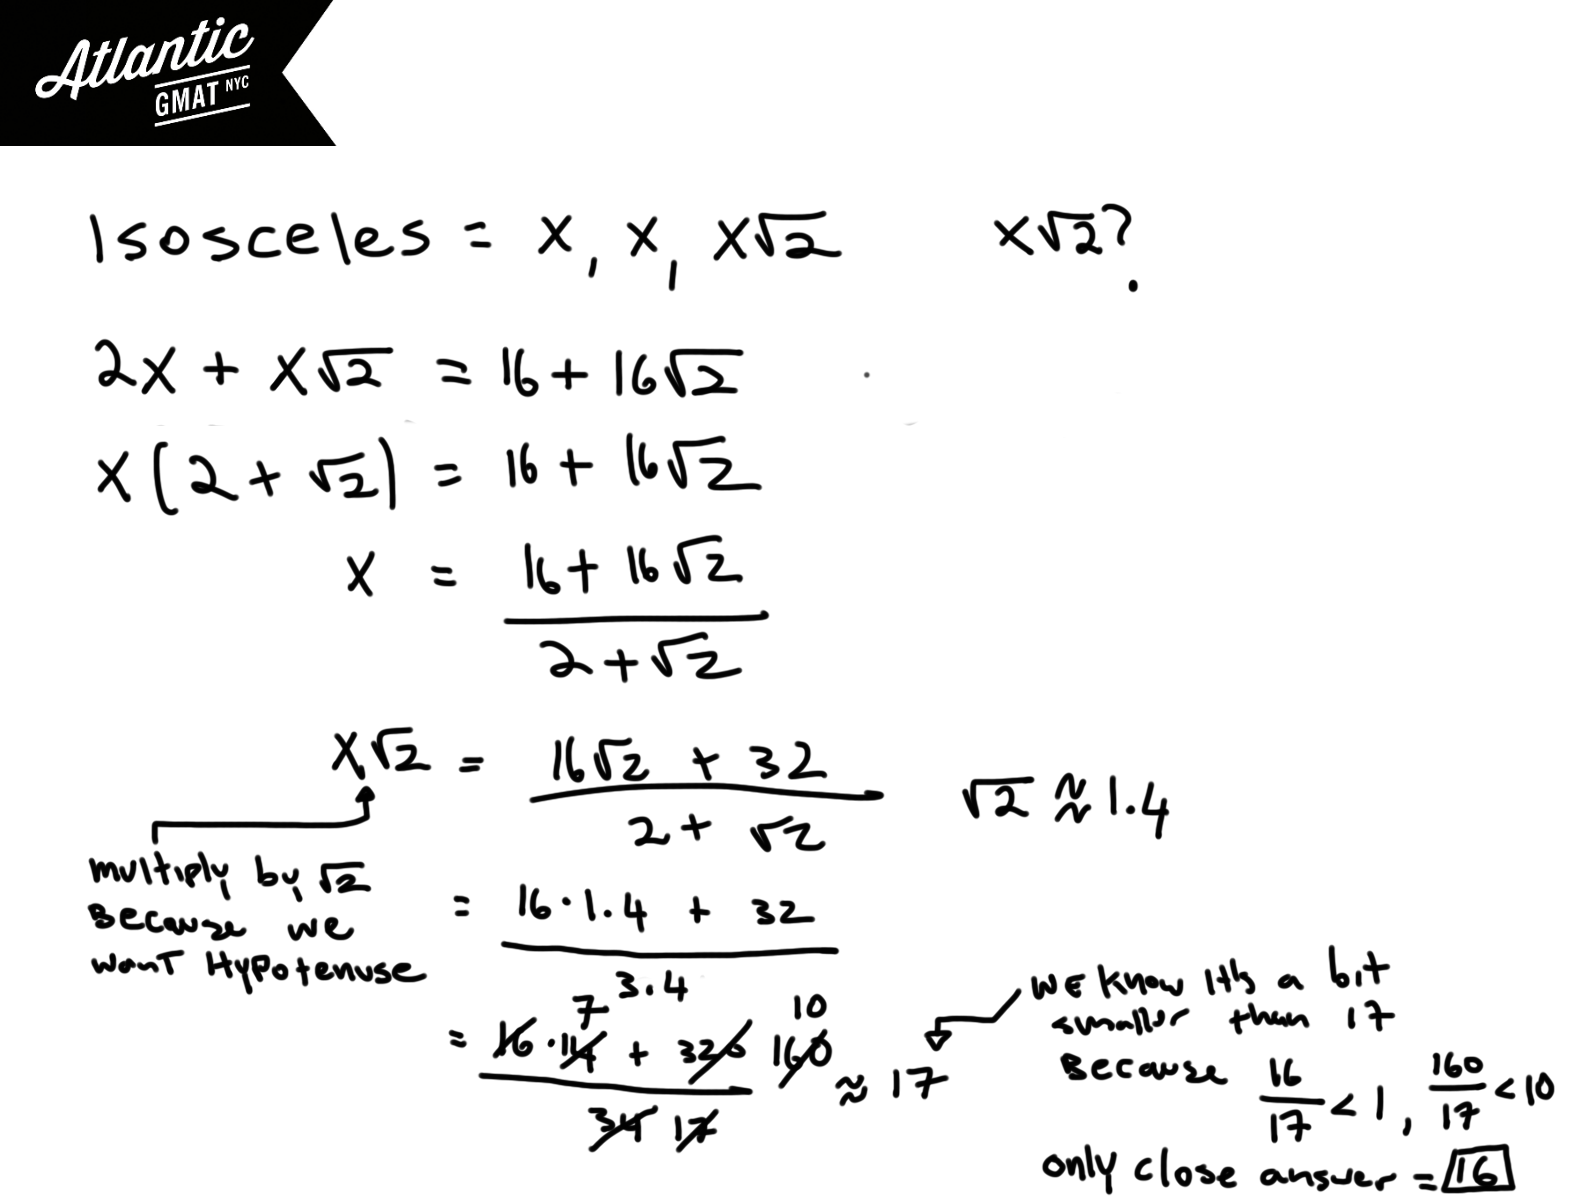 Atlantic
GMAT NYC
Isosceles = x, x, x√2 x√2?
2x + x√2 = 16 + 16√2
x(2 + √2) = 16 + 16√2
x = 16 + 16√2
2 + √2
x√2 = 16√2 + 32
2 + √2
√2 ≈ 1.4
multiply by √2
Because we
want Hypotenuse
= 16·1.4 + 32
3.4
7 10
= 16·14 + 320 160 ≈ 17
34 17
we know It's a bit
smaller than 17
Because 16/17 < 1, 160/17 < 10
only close answer = 16